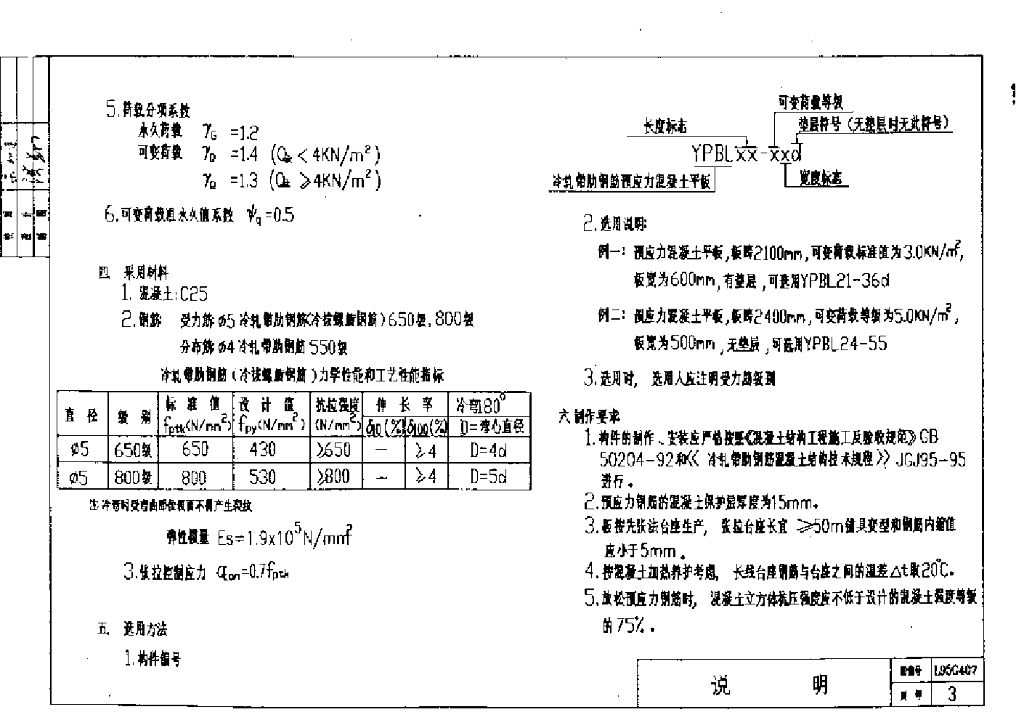 5.荷载分项系数
永久荷载 γG =1.2
可变荷载 γQ =1.4 (Qk<4KN/m²)
γQ =1.3 (Qk⩾4KN/m²)
6.可变荷载准永久值系数 ψq=0.5
四. 采用材料
1. 混凝土:C25
2.钢筋: 受力筋 φ5冷轧带肋钢筋(冷拔螺旋钢筋)650级,800级
分布筋 φ4冷轧带肋钢筋550级
冷轧带肋钢筋(冷拔螺旋钢筋)力学性能和工艺性能指标
直 径 级 别 标 准 值 fptk(N/mm²) 设 计 值 fpy(N/mm²) 抗拉强度 (N/mm²) 伸 长 率 δ10(%) δ100(%) 冷弯180° D=弯心直径
φ5 650级 650 430 ⩾650 — ⩾4 D=4d
φ5 800级 800 530 ⩾800 — ⩾4 D=5d
注:冷弯时受弯曲部位表面不得产生裂纹
弹性模量 Es=1.9x10⁵N/mm²
3.张拉控制应力 σcon=0.7fptk
五. 选用方法
1.构件编号
可变荷载等级
长度标志 垫层符号(无垫层时无此符号)
YPBLxx-xxd
冷轧带肋钢筋预应力混凝土平板 宽度标志
2.选用说明:
例一: 预应力混凝土平板,板跨2100mm,可变荷载标准值为3.0KN/m²,
板宽为600mm,有垫层,可选用YPBL21-36d
例二: 预应力混凝土平板,板跨2400mm,可变荷载等级为5.0KN/m²,
板宽为500mm,无垫层,可选用YPBL24-55
3.选用时, 选用人应注明受力筋级别
六.制作要求
1.构件的制作、安装应严格按照《混凝土结构工程施工及验收规范》GB
50204-92和《冷轧带肋钢筋混凝土结构技术规程》JGJ95-95
进行。
2.预应力钢筋的混凝土保护层厚度为15mm。
3.板按先张法台座生产, 张拉台座长宜 ⩾50m锚具变型和钢筋内缩值
应小于5mm。
4.按混凝土加热养护考虑, 长线台座钢筋与台座之间的温差△t取20℃。
5.放松预应力钢筋时, 混凝土立方体抗压强度应不低于设计的混凝土强度等级
的75%。
说 明
图集号 L95G407
页 号 3